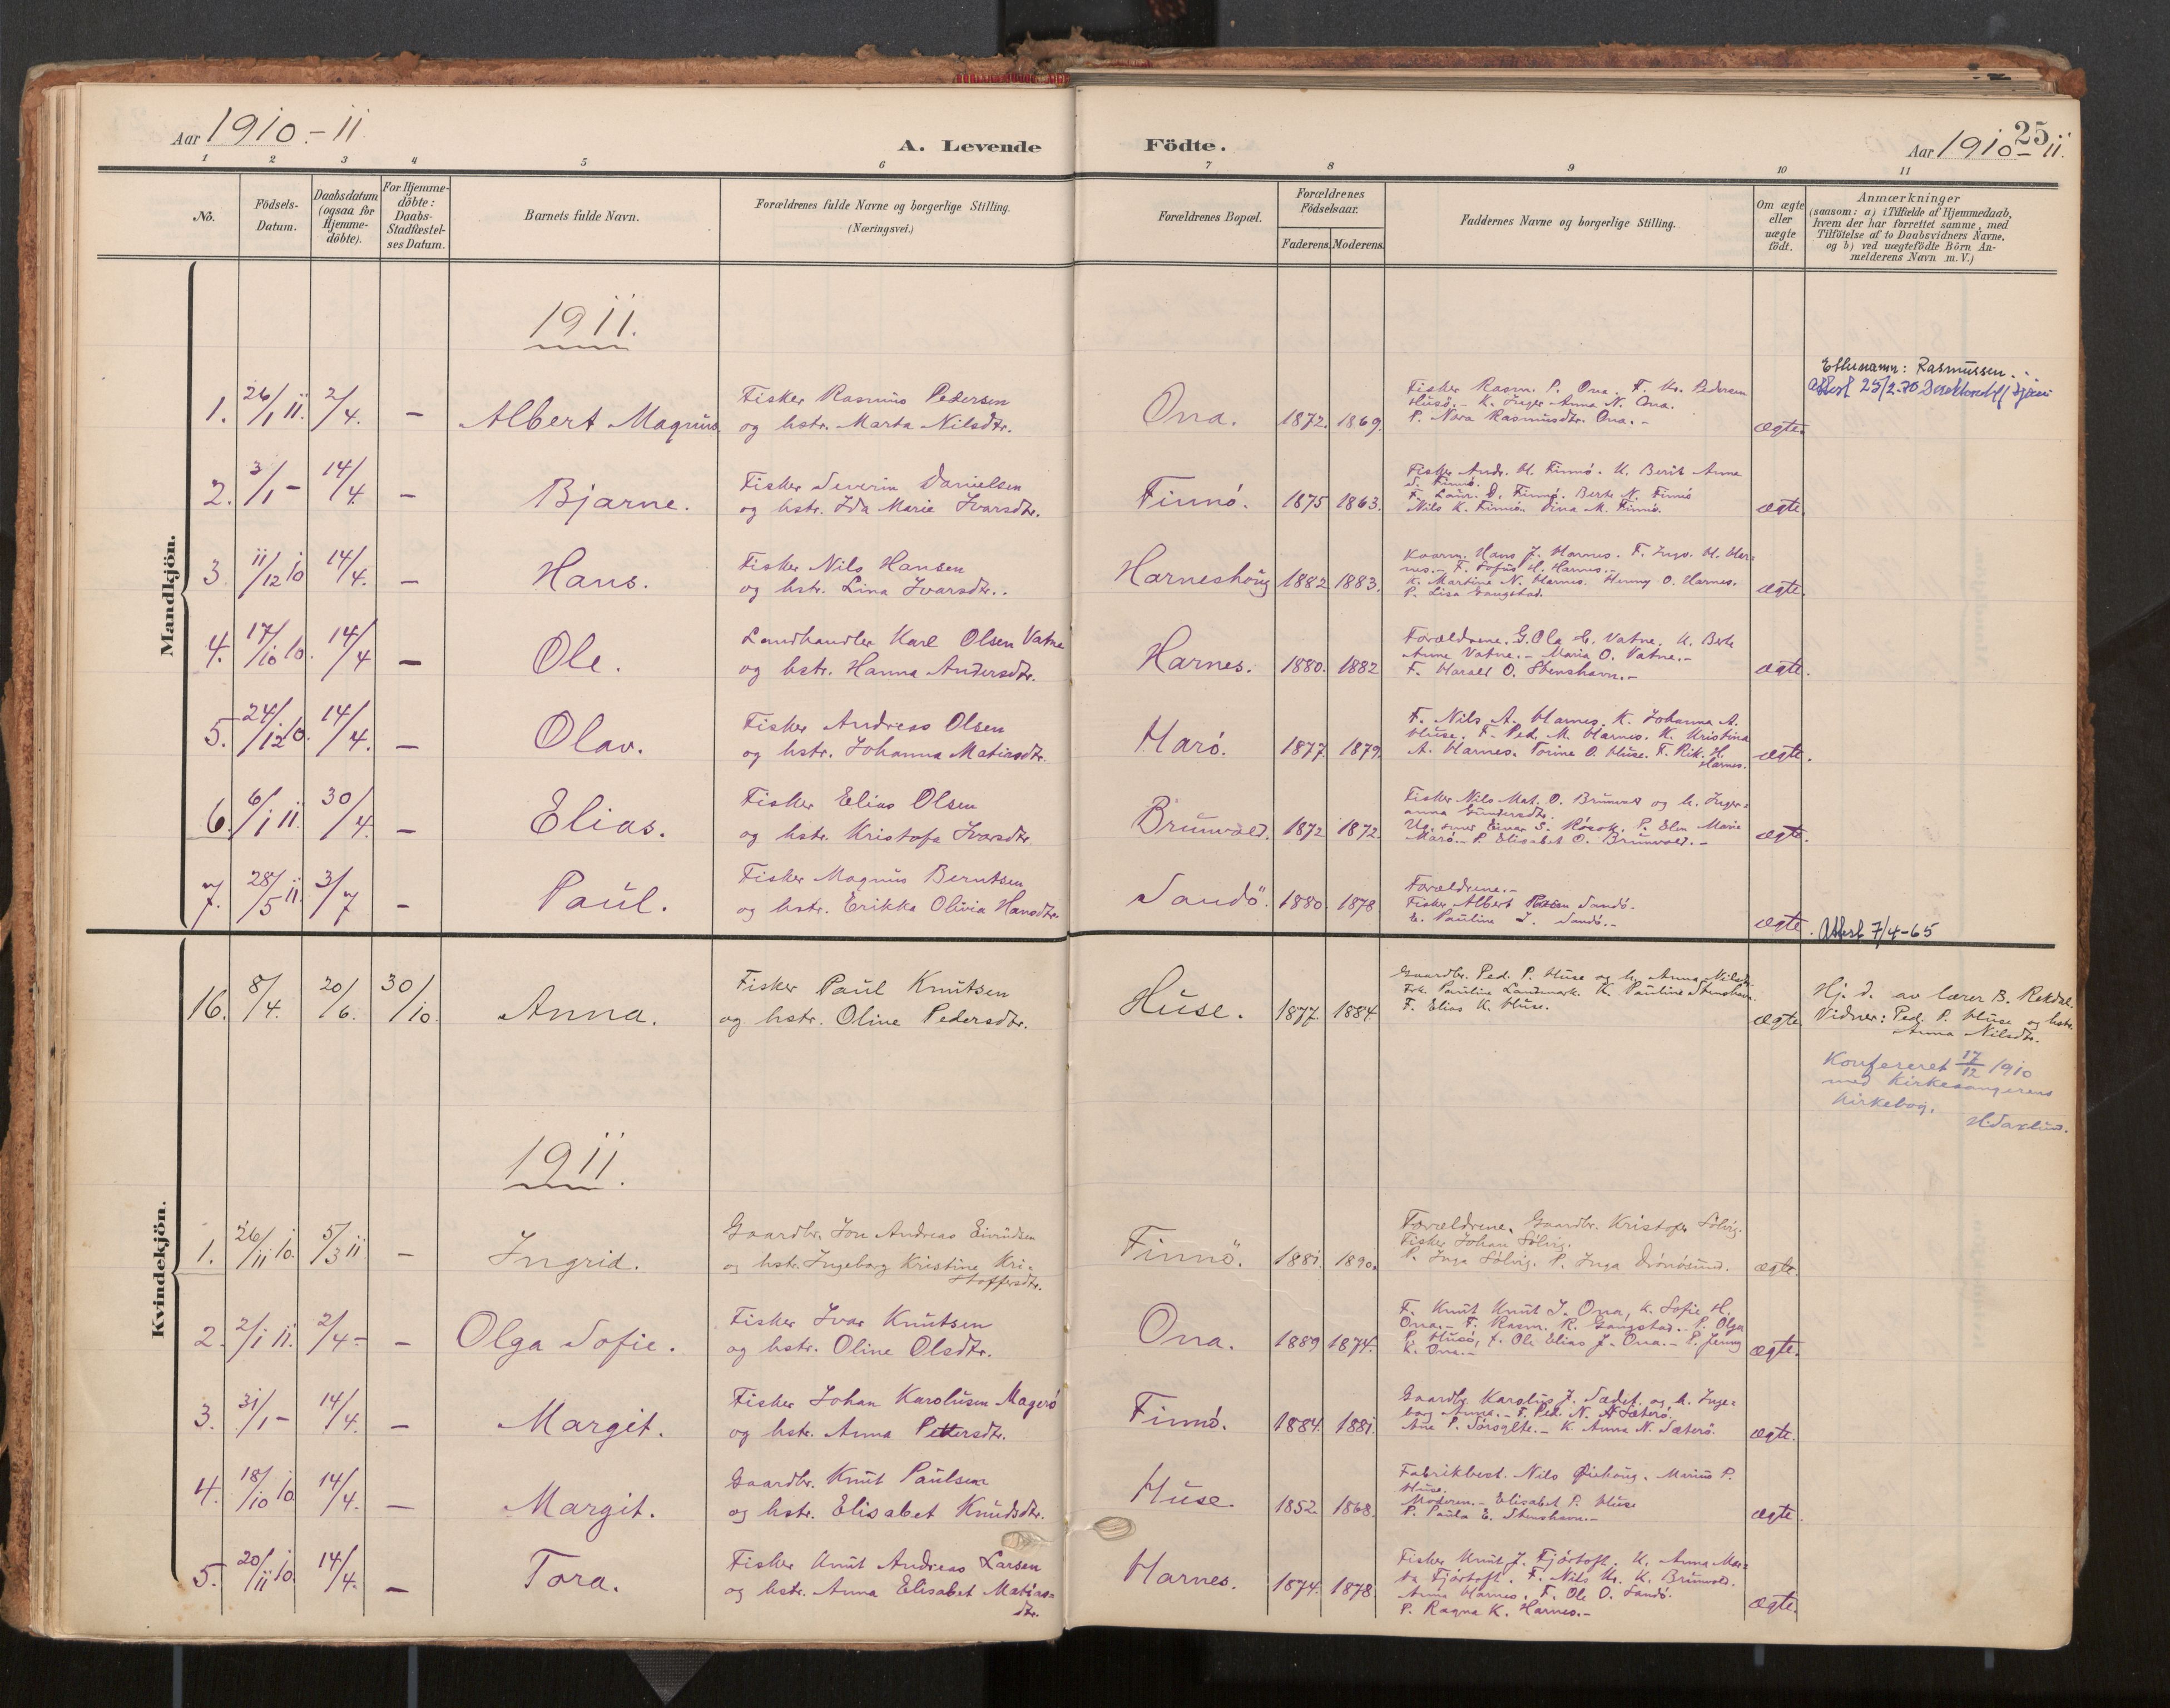 Aar 1910.-11.
A. Levende Födte.
25
Aar 1910-11.
1 2 3 4 5 6 7 8 9 10 11
No.
Födsels-Datum.
Daabsdatum (ogsaa for Hjemme-döbte).
For Hjemme-döbte: Daabs-Stadfæstel-ses Datum.
Barnets fulde Navn.
Forældrenes fulde Navne og borgerlige Stilling.
(Næringsvei.)
Forældrenes Bopæl.
Forældrenes Födselsaar.
Faderens. Moderens.
Faddernes Navne og borgerlige Stilling.
Om ægte eller uægte födt.
Anmærkninger
(saasom: a) i Tilfælde af Hjemmedaab,
hvem der har forrettet samme, med
Tilföielse af to Daabsvidners Navne,
og b) ved uægtefödte Börn An-
melderens Navn m. V.)
Mandkjön.
1911.
Etternamn: Rasmussen.
Attest 25/2-70
1. 26/1 11. 2/4. - Albert Magnus. Fisker Rasmus Pedersen
og hstr. Marta Nilsdtr. Ona. 1872. 1869. Fisker Rasm. P. Ona. F. Kr. Pedersen
Husö. - K. Inger Anna N. Ona.
P. Nora Rasmusdtr. Ona. - ægte.
2. 3/1 - 14/4. - Bjarne. Fisker Severin Danielsen
og hstr. Ida Marie Ivarsdtr. Finnö. 1875 1863. Fisker Andr. H. Finnö. K. Berit Anna
S. Finnö.
F. Laur. D. Finnö. Berte N. Finnö
Nils K. Finnö. Dina M. Finnö. ægte.
3. 11/12 10 14/4. - Hans. Fisker Nils Hansen
og hstr. Lina Ivarsdtr. Harneshaug 1882 1883. Kaarm. Hans J. Harnes. F. Ingv. H. Har=
nes. - F. Sofus H. Harnes. -
K. Martine N. Harnes. Henny O. Harnes.
P. Lisa Gangstad. ægte.
4. 17/10 10. 14/4 - Ole. Landhandler Karl Olsen Vatne
og hstr. Hanna Andersdtr. Harnes. 1880. 1882 Forældrene. G. Ola E. Vatne. K. Berte
Anne Vatne. - Maria O. Vatne. -
F. Harald O. Stenshavn. - ægte.
5. 24/12 10. 14/4. - Olav. Fisker Andreas Olsen
og hstr. Johanna Matiasdtr. Harö. 1877. 1879. F. Nils A. Harnes. K. Johanna A.
Huse. F. Ped. M. Harnes. K. Kristina
A. Harnes. Torine O. Huse. F. Rik. H.
Harnes. ægte.
6. 6/1 11. 30/4. - Elias. Fisker Elias Olsen
og hstr. Kristofa Ivarsdtr. Brunvold. 1872 1872. Fisker Nils Mat. O. Brunvold og h. Inger=
anna Gundersdtr.
Ug. smed Einar S. Rösok. P. Elen Marie
Harö. - P. Elisabet O. Brunvold. - ægte.
7. 28/5 11. 3/7 - Paul. Fisker Magnus Berntsen
og hstr. Erikka Olivia Hansdtr. Sandö. 1880. 1878 Forældrene. -
Fisker Albert Sandö. -
E. Pauline I. Sandö. - ægte. Attest 7/4-65
Kvindekjön.
16. 8/4. 20/6. 30/10. Anna. Fisker Paul Knutsen
og hstr. Oline Pedersdtr. Huse. 1877. 1884. Gaardbr. Ped. P. Huse og h. Anna Nilsdtr.
Frk. Pauline Landmark. K. Pauline Stenshavn.
F. Elias K. Huse. ægte. Hj. d. av lærer B. Rekdal.
Vidner: Ped. P. Huse og hstr.
Anna Nilsdtr.
Konfereret 17/12 1910
med kirkesangerens
kirkebog.
H. Saxlund.
1911.
1. 26/11 10. 5/3 11 - Ingrid. Gaardbr. Jon Andreas Eivindsen
og hstr. Ingeborg Kristine Kri-
stoffersdtr. Finnö. 1881. 1890. Forældrene. Gaardbr. Kristofer Sölvig.
Fisker Johan Sölvig.
P. Inga Sölvig. P. Inga Drönösund. ægte.
2. 2/1 11. 2/4 - - Olga Sofie. Fisker Ivar Knutsen
og hstr. Oline Olsdtr. Ona. 1889 1874. F. Knut Knut I. Ona, K. Sofie H.
Ona. - F. Rasm. R. Gangstad. - P. Olga
P. Husö, F. Ole Elias J. Ona. - P. Jenny
K. Ona. - ægte.
3. 31/1 - 14/4. - Margit. Fisker Johan Karolusen Magerö
og hstr. Anna Pettersdtr. Finnö. 1884. 1881. Gaardbr. Karolus J. Sædet. og h. Inge=
borg Anna. - F. Ped. N. Sæterö.
Ane P. Sörsylte. - K Anna N. Sæterö. ægte.
4. 18/10 10 14/4. - Margit. Gaardbr. Knut Paulsen
og hstr. Elisabet Knudsdtr. Huse. 1852. 1868. Fabrikbest. Nils Öiehaug. Marius P.
Huse.
Moderen. - Elisabet P. Huse
P. Paula E. Stenshavn. - ægte.
5. 20/11 10. 14/4. - Tora. Fisker Knut Andreas Larsen
og hstr. Anna Elisabet Matias=
dtr. Harnes. 1874. 1878. Fisker Knut J. Fjörtoft. K. Anna Mar=
ta Fjörtoft. F. Nils Kr. K. Brunvold.
Anna Harnes. F. Ole O. Sandö.
P. Ragna K. Harnes. - ægte.